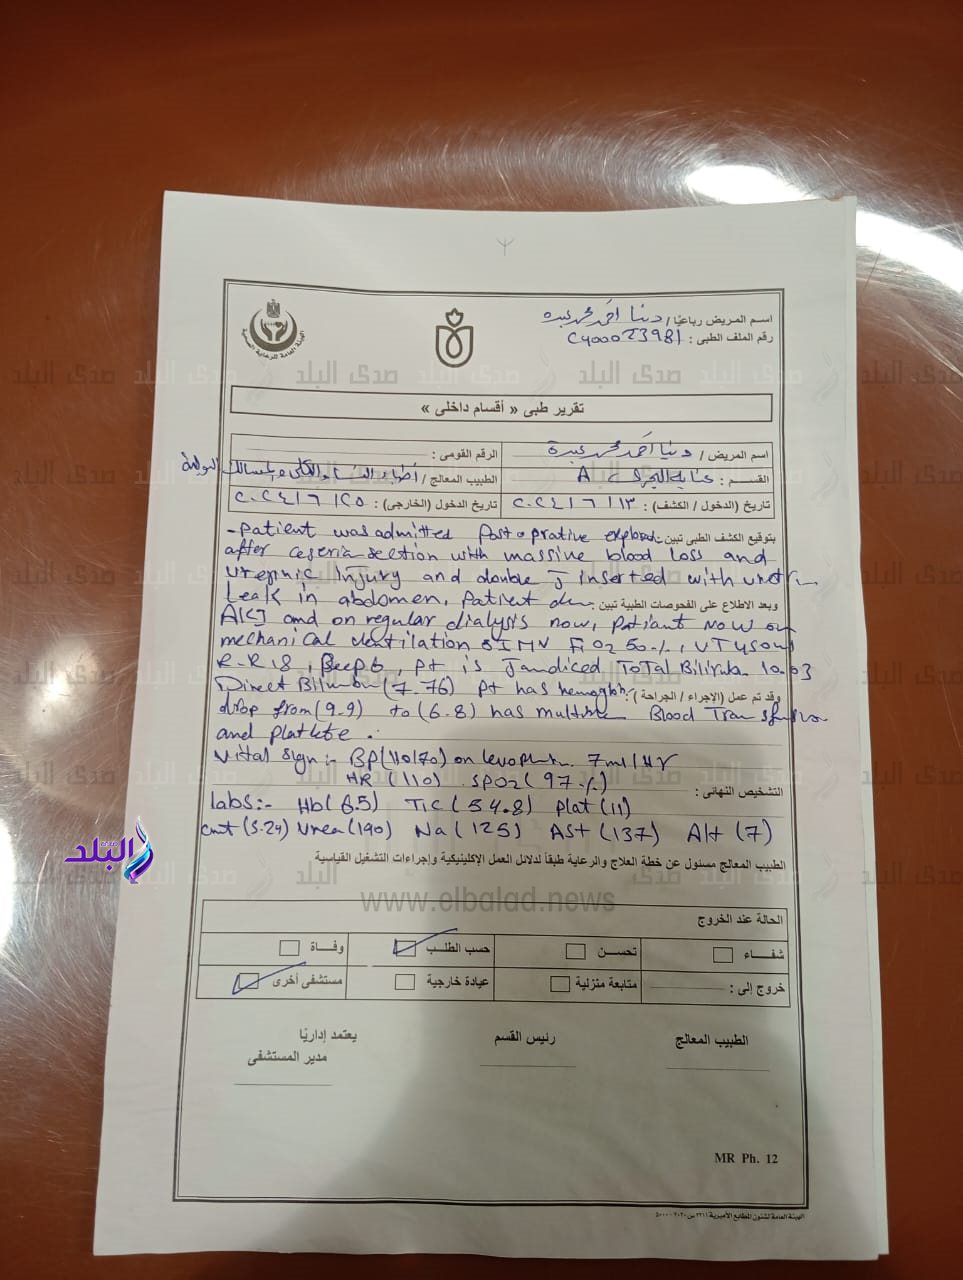 اسم المريض رباعيًا / دينا أحمد محمد عبده
رقم الملف الطبى :
الهيئة العامة للرعاية الصحية
تقرير طبى « أقسام داخلى »
اسم المريض / دينا أحمد محمد عبدة
الرقم القومى :
القسم : عناية A
الطبيب المعالج / أطباء النساء والكلى والمسالك البولية
تاريخ (الدخول / الكشف) : ٢٠٢٤/٦/١٣
تاريخ الدخول (الخارجى) : ٢٠٢٤/٦/٢٥
بتوقيع الكشف الطبى تبين :
- Patient was admitted Postoprative
after section with massive blood loss and
injury and double J inserted with
Leak in abdomen, Patient
وبعد الاطلاع على الفحوصات الطبية تبين :
AKI and on regular dialysis now, patiant now on
mechanical ventilation SIMV FiO2 50%, VT 450
R.R 18, Peep 6, pt is Jandiced ToTal Bilirubin 10.03
Direct (7.76) pt has
وقد تم عمل (الإجراء / الجراحة) :
drop from (9.9) to (6.8) has Blood
and
Vital sign :- BP (110/70) on 7 ml/Hr
HR (110) SPO2 (97%)
التشخيص النهائى :
labs :- Hb (6.5) TLC (54.8) Plat (11)
(5.24) Urea (190) Na (125) ASt (137) Alt (7)
الطبيب المعالج مسئول عن خطة العلاج والرعاية طبقاً لدلائل العمل الإكلينيكية وإجراءات التشغيل القياسية
البلد
صدى البلد
www.elbalad.news
الحالة عند الخروج
شفاء تحسن حسب الطلب وفاة
خروج إلى : متابعة منزلية عيادة خارجية مستشفى أخرى
الطبيب المعالج رئيس القسم يعتمد إداريًا
مدير المستشفى
MR Ph. 12